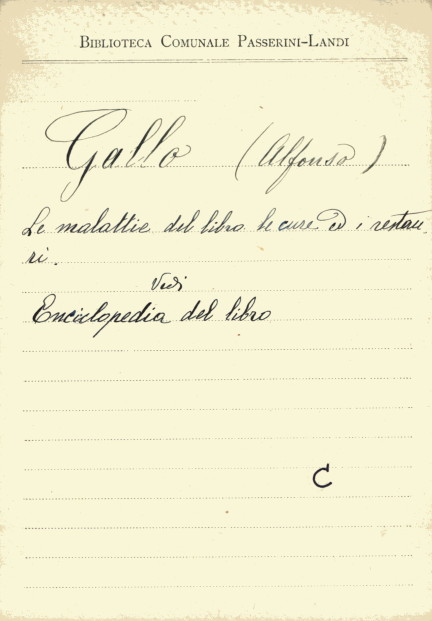 BIBLIOTECA COMUNALE PASSERINI-LANDI
Gallo (Alfonso)
Le malattie del libro le cure ed i restau-
ri.
Vedi
Enciclopedia del libro
C